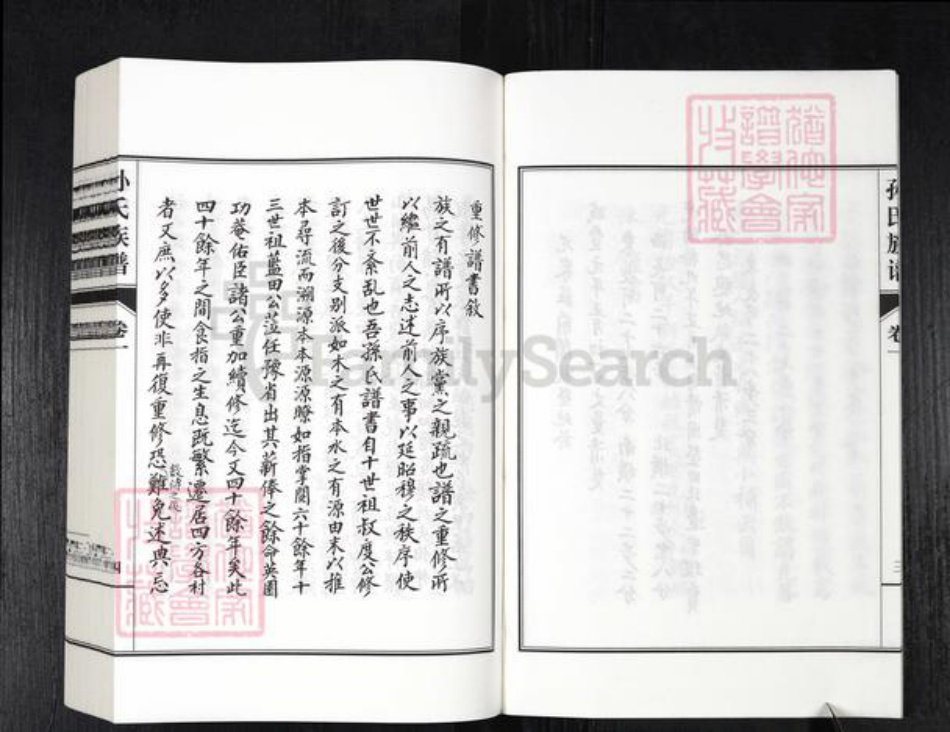 重修譜書敘
族之有譜所以序族黨之親疏也譜之重修所
以繼前人之志述前人之事以延昭穆之秩序使
世世不紊乱也吾孫氏譜書自十世祖叔度公修
訂之後分支别派如木之有本水之有源由末以推
本尋流而溯源本本源源瞭如指掌閱六十餘年十
三世祖藍田公蒞任豫省出其薪俸之餘命英圃
功菴佑臣諸公重加續修迄今又四十餘年矣此
四十餘年之間食指之生息既繁遷居四方各村
者又庶以多使非再復重修恐數傳之後難免述典忘
孙氏族譜
卷一
四
孙氏族谱
卷一
三
FamilySearch